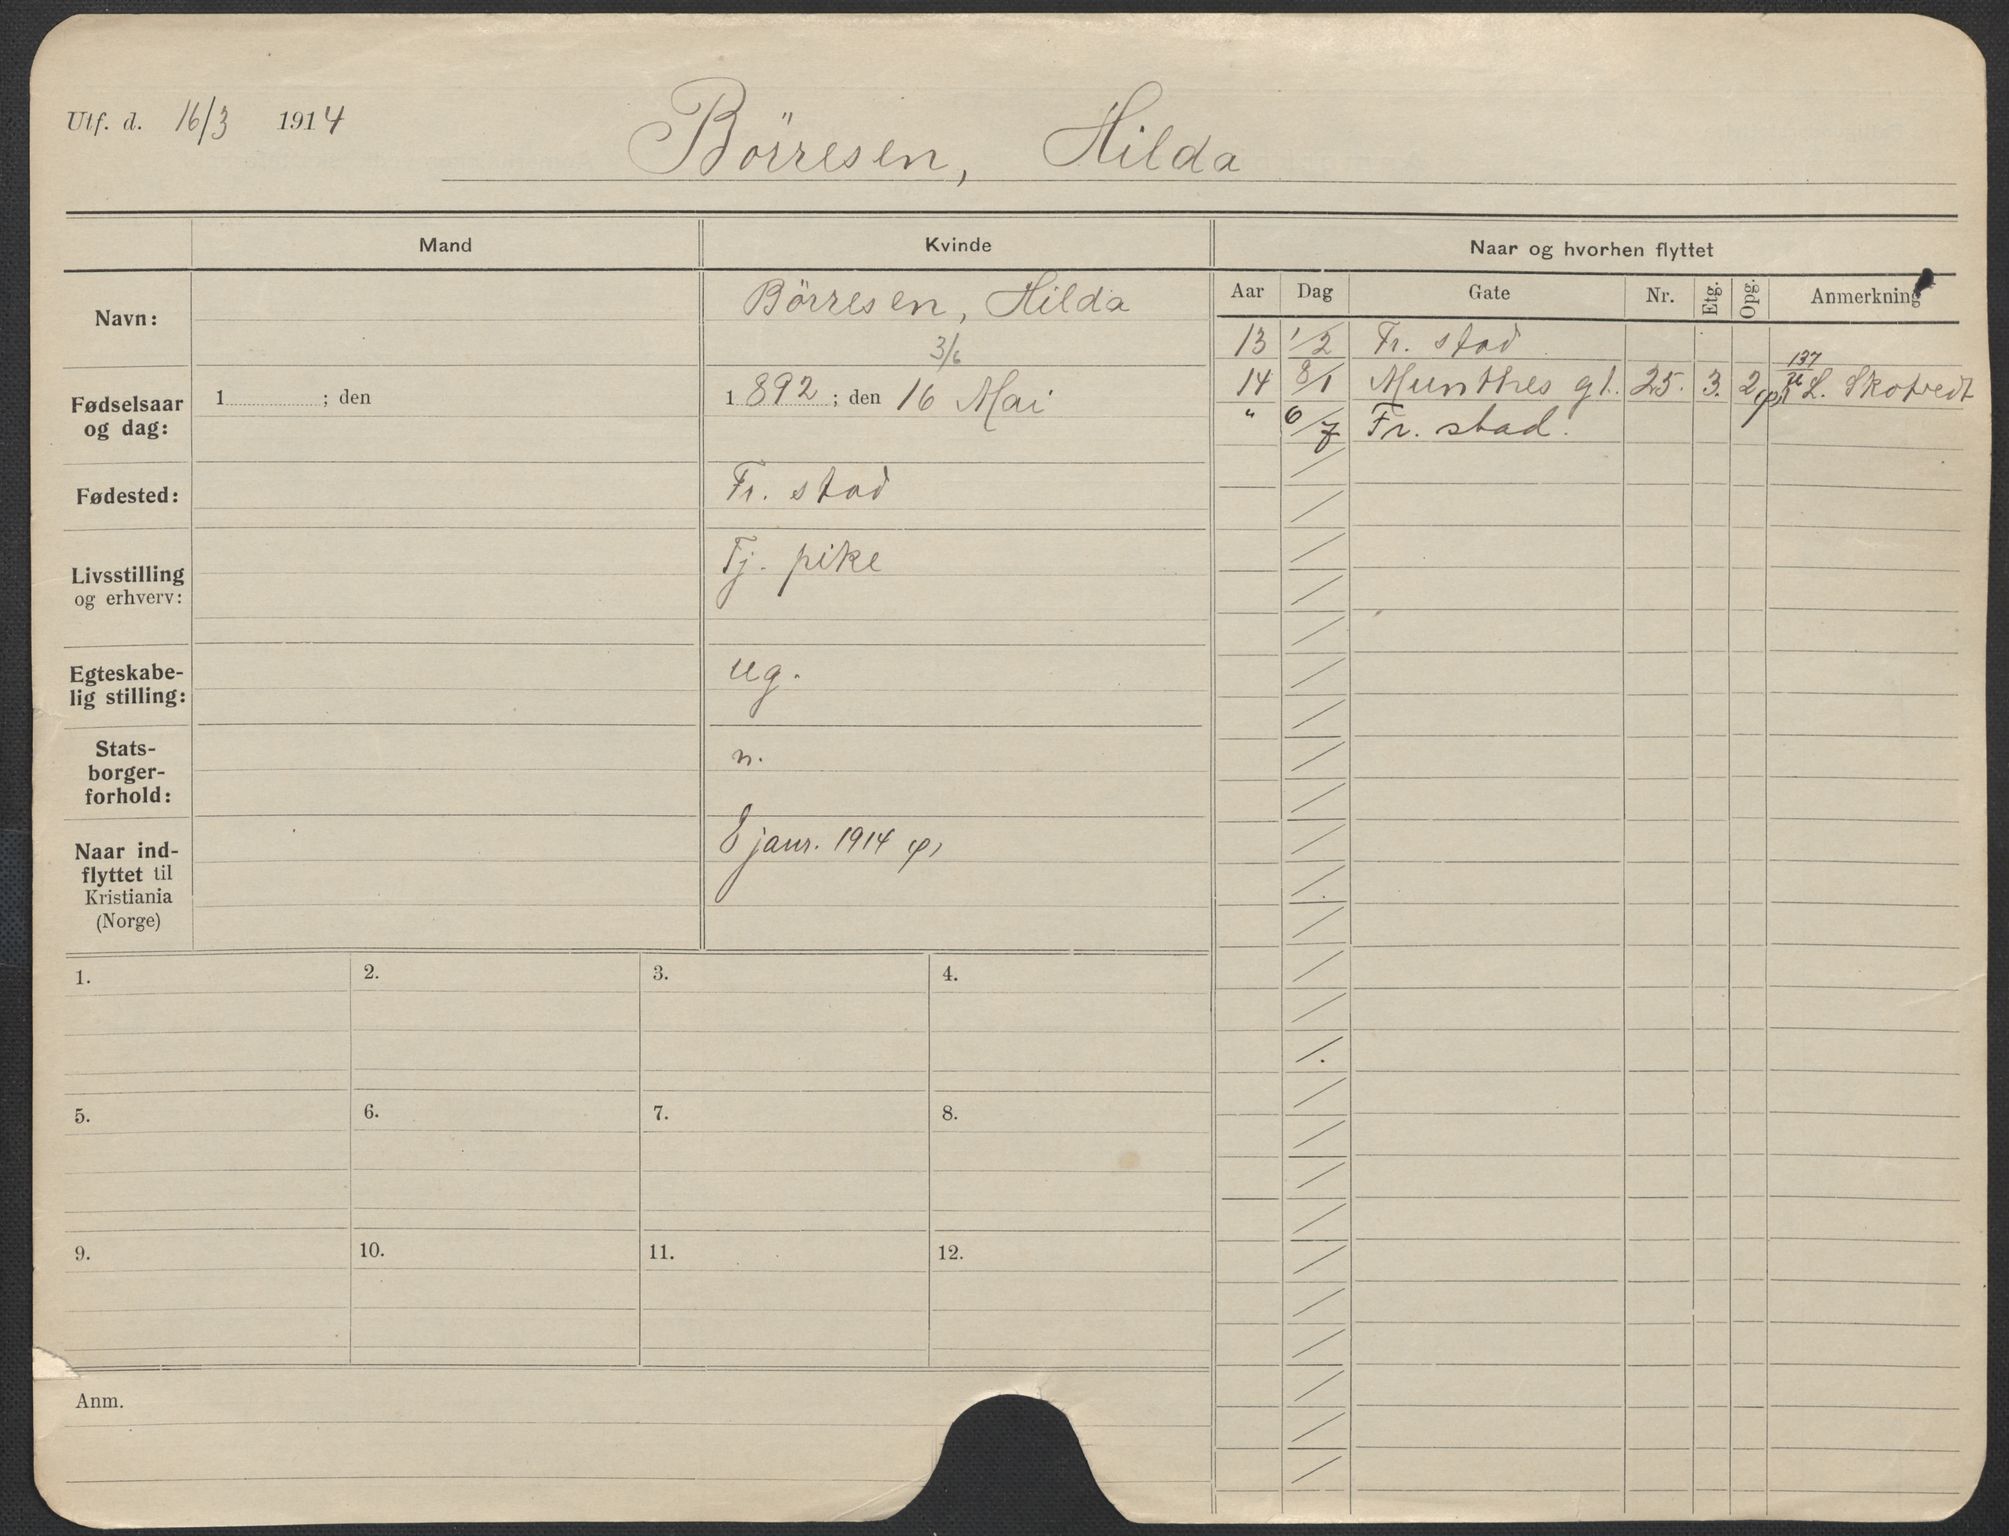 Utf. d. 16/3 1914
Börresen, Hilda
Mand
Kvinde
Naar og hvorhen flyttet
Aar Dag Gate Nr. Etg. Opg. Anmerkning
Navn:
Börresen, Hilda
3/6
Fødselsaar og dag:
1 ; den
1892 ; den 16 Mai
Fødested:
Fr. stad
Livsstilling og erhverv:
Tj. pike
Egteskabe-
lig stilling:
ug.
Stats-
borger-
forhold:
n.
Naar ind-
flyttet til
Kristiania
(Norge)
8 janr. 1914
13 1/2 Fr. stad
137
14 8/1 Munthes gt. 25. 3. 2 L. Skotvedt
" 6/7 Fr. stad.
1.
2.
3.
4.
5.
6.
7.
8.
9.
10.
11.
12.
Anm.